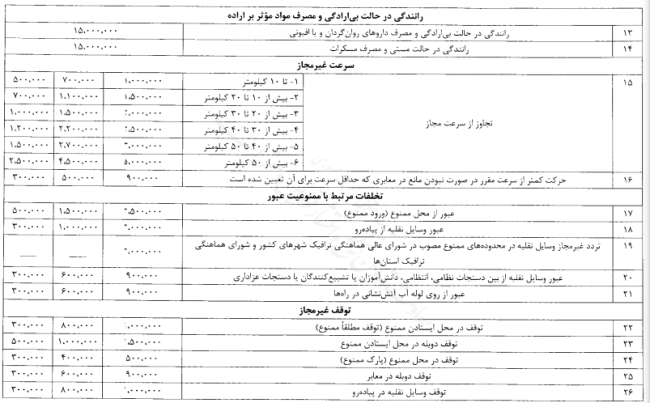 رانندگی در حالت بی‌ارادگی و مصرف مواد مؤثر بر اراده
۱۳ رانندگی در حالت بی‌ارادگی و مصرف داروهای روان‌گردان و یا افیونی ۱۵.۰۰۰.۰۰۰
۱۴ رانندگی در حالت مستی و مصرف مسکرات ۱۵.۰۰۰.۰۰۰
سرعت غیرمجاز
۱۵ تجاوز از سرعت مجاز
۱- تا ۱۰ کیلومتر ۱.۰۰۰.۰۰۰ ۷۰۰.۰۰۰ ۵۰۰.۰۰۰
۲- بیش از ۱۰ تا ۲۰ کیلومتر ۱.۵۰۰.۰۰۰ ۱.۱۰۰.۰۰۰ ۷۰۰.۰۰۰
۳- بیش از ۲۰ تا ۳۰ کیلومتر ۱.۵۰۰.۰۰۰ ۱.۰۰۰.۰۰۰
۴- بیش از ۳۰ تا ۴۰ کیلومتر ۲.۲۰۰.۰۰۰ ۱.۲۰۰.۰۰۰
۵- بیش از ۴۰ تا ۵۰ کیلومتر ۲.۷۰۰.۰۰۰ ۱.۵۰۰.۰۰۰
۶- بیش از ۵۰ کیلومتر ۵.۰۰۰.۰۰۰ ۴.۵۰۰.۰۰۰ ۲.۵۰۰.۰۰۰
۱۶ حرکت کمتر از سرعت مقرر در صورت نبودن مانع در معابری که حداقل سرعت برای آن تعیین شده است ۹۰۰.۰۰۰ ۵۰۰.۰۰۰ ۳۰۰.۰۰۰
تخلفات مرتبط با ممنوعیت عبور
۱۷ عبور از محل ممنوع (ورود ممنوع) ۱.۵۰۰.۰۰۰ ۵۰۰.۰۰۰
۱۸ عبور وسایل نقلیه از پیاده‌رو ۱.۰۰۰.۰۰۰ ۳۰۰.۰۰۰
۱۹ تردد غیرمجاز وسایل نقلیه در محدوده‌های ممنوع مصوب در شورای عالی هماهنگی ترافیک شهرهای کشور و شورای هماهنگی
ترافیک استان‌ها
۲۰ عبور وسایل نقلیه از بین دستجات نظامی، انتظامی، دانش‌آموزان یا تشییع‌کنندگان یا دستجات عزاداری ۹۰۰.۰۰۰ ۶۰۰.۰۰۰ ۳۰۰.۰۰۰
۲۱ عبور از روی لوله آب آتش‌نشانی در راه‌ها ۹۰۰.۰۰۰ ۶۰۰.۰۰۰ ۳۰۰.۰۰۰
توقف غیرمجاز
۲۲ توقف در محل ایستادن ممنوع (توقف مطلقاً ممنوع) ۸۰۰.۰۰۰ ۳۰۰.۰۰۰
۲۳ توقف دوبله در محل ایستادن ممنوع ۱.۰۰۰.۰۰۰ ۵۰۰.۰۰۰
۲۴ توقف در محل ممنوع (پارک ممنوع) ۵۰۰.۰۰۰ ۴۰۰.۰۰۰ ۳۰۰.۰۰۰
۲۵ توقف دوبله در معابر ۹۰۰.۰۰۰ ۶۰۰.۰۰۰ ۳۰۰.۰۰۰
۲۶ توقف وسایل نقلیه در پیاده‌رو ۸۰۰.۰۰۰ ۳۰۰.۰۰۰